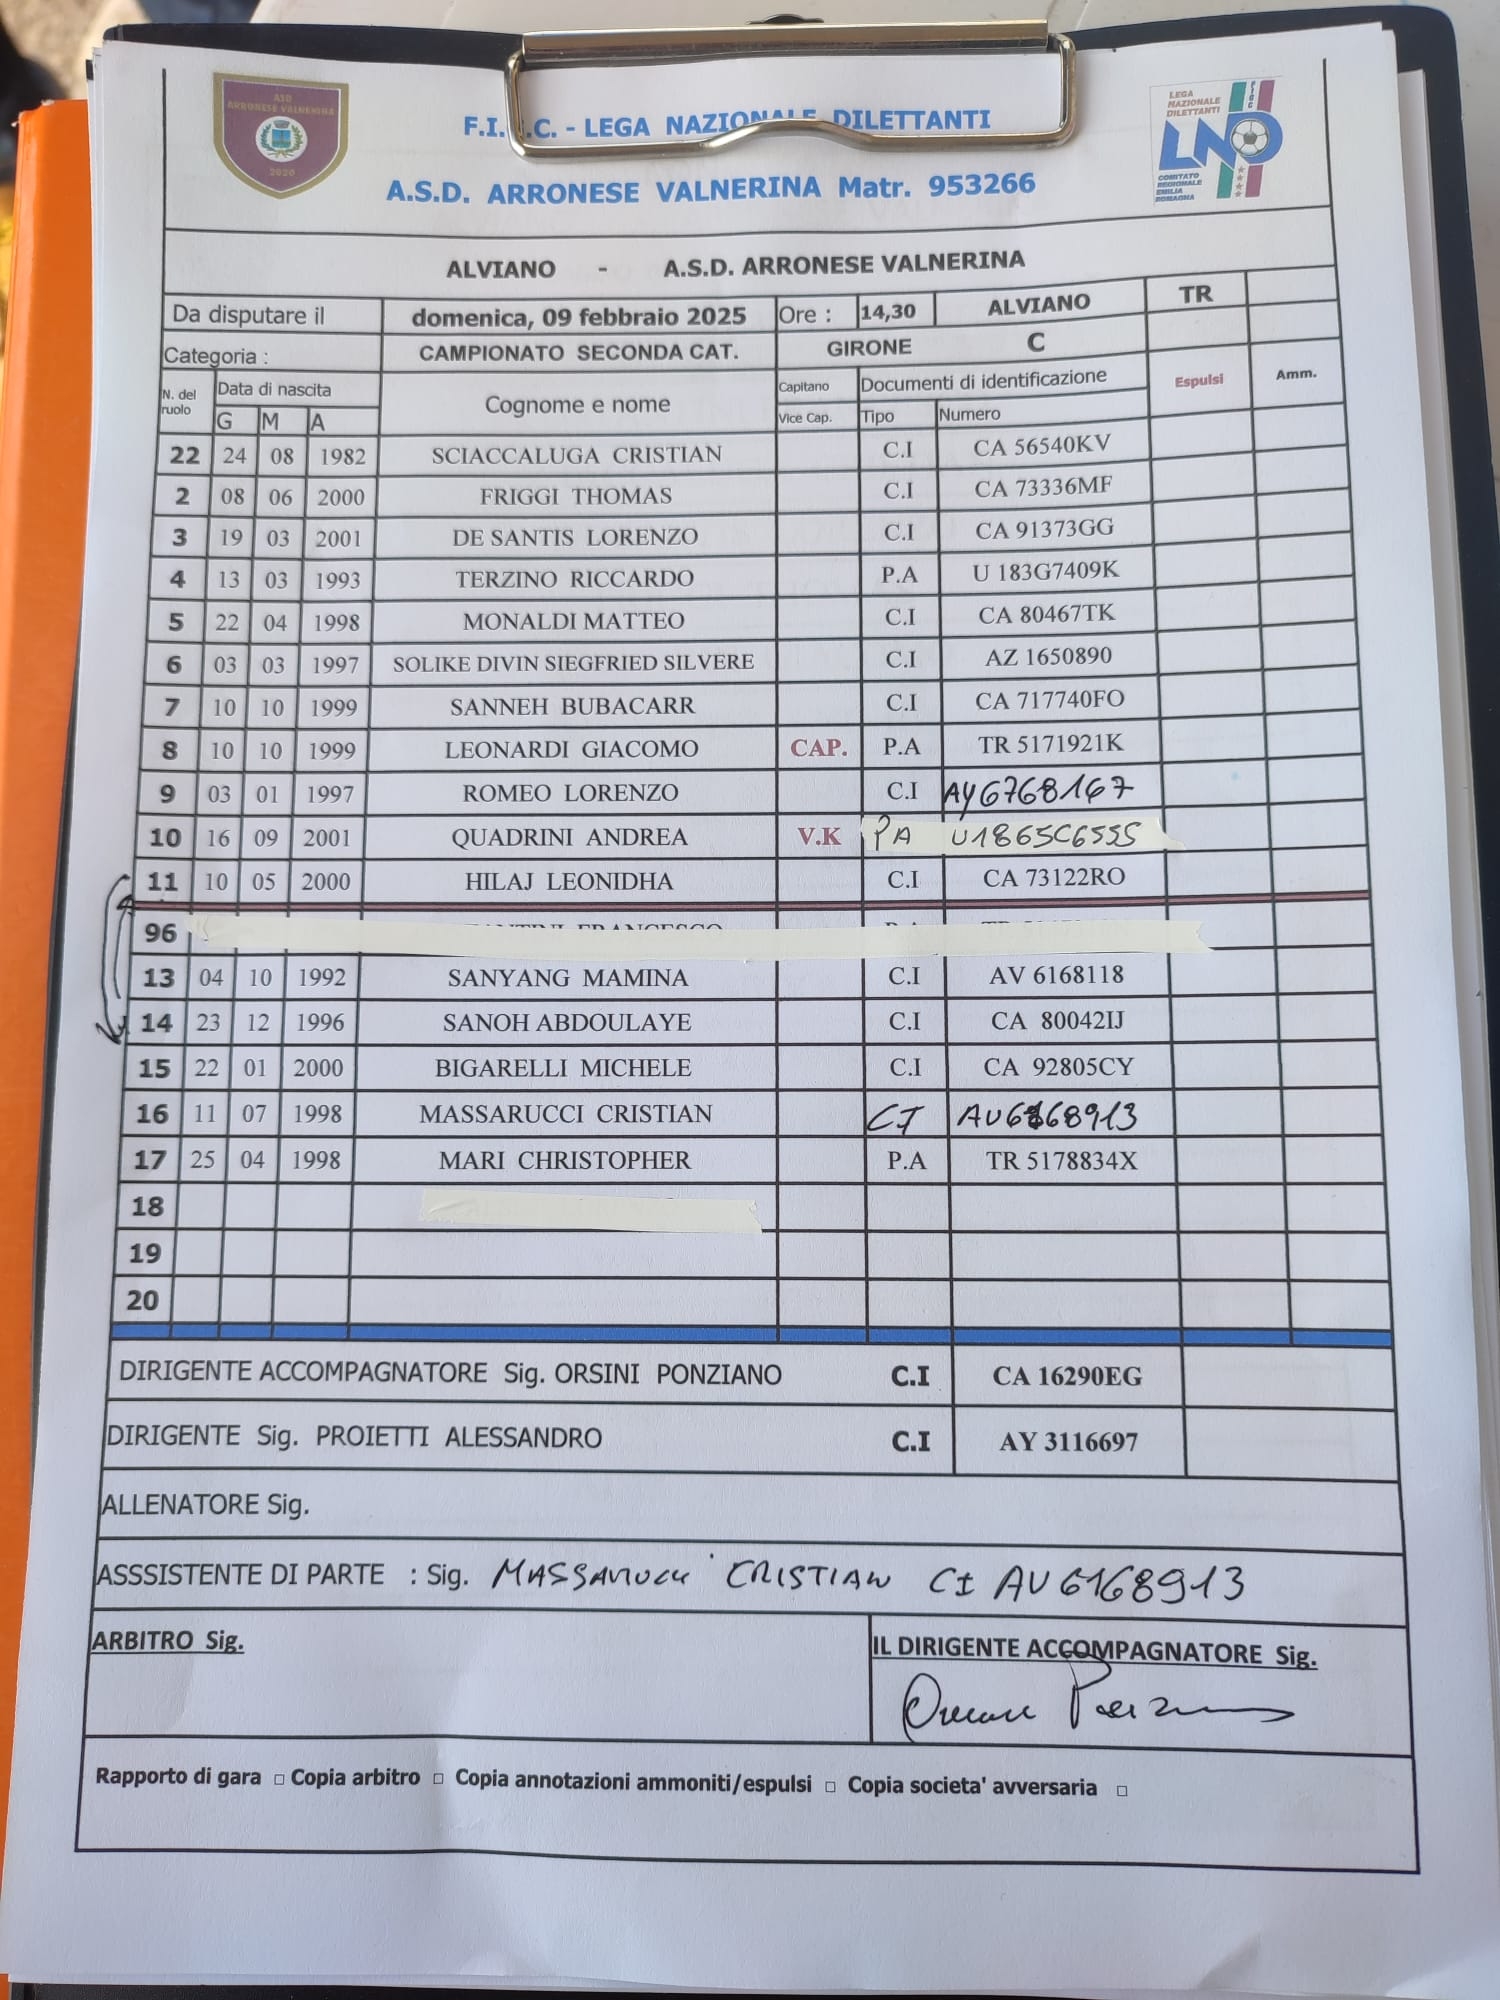 ASD
ARRONESE VALNERINA
2020
F.I. .C. - LEGA NAZIONALE DILETTANTI
A.S.D. ARRONESE VALNERINA Matr. 953266
LEGA
NAZIONALE
DILETTANTI
FIGC
LND
COMITATO
REGIONALE
EMILIA
ROMAGNA
ALVIANO - A.S.D. ARRONESE VALNERINA
Da disputare il domenica, 09 febbraio 2025 Ore : 14,30 ALVIANO TR
Categoria : CAMPIONATO SECONDA CAT. GIRONE C
N. del ruolo Data di nascita Cognome e nome Capitano Documenti di identificazione Espulsi Amm.
G M A Vice Cap. Tipo Numero
22 24 08 1982 SCIACCALUGA CRISTIAN C.I CA 56540KV
2 08 06 2000 FRIGGI THOMAS C.I CA 73336MF
3 19 03 2001 DE SANTIS LORENZO C.I CA 91373GG
4 13 03 1993 TERZINO RICCARDO P.A U 183G7409K
5 22 04 1998 MONALDI MATTEO C.I CA 80467TK
6 03 03 1997 SOLIKE DIVIN SIEGFRIED SILVERE C.I AZ 1650890
7 10 10 1999 SANNEH BUBACARR C.I CA 717740FO
8 10 10 1999 LEONARDI GIACOMO CAP. P.A TR 5171921K
9 03 01 1997 ROMEO LORENZO C.I AY6768167
10 16 09 2001 QUADRINI ANDREA V.K PA U1865C655S
11 10 05 2000 HILAJ LEONIDHA C.I CA 73122RO
96 FRANCESCO P.A TR
13 04 10 1992 SANYANG MAMINA C.I AV 6168118
14 23 12 1996 SANOH ABDOULAYE C.I CA 80042IJ
15 22 01 2000 BIGARELLI MICHELE C.I CA 92805CY
16 11 07 1998 MASSARUCCI CRISTIAN CI AU6168913
17 25 04 1998 MARI CHRISTOPHER P.A TR 5178834X
18
19
20
DIRIGENTE ACCOMPAGNATORE Sig. ORSINI PONZIANO C.I CA 16290EG
DIRIGENTE Sig. PROIETTI ALESSANDRO C.I AY 3116697
ALLENATORE Sig.
ASSSISTENTE DI PARTE : Sig. MASSARUCCI CRISTIAN CI AU6168913
ARBITRO Sig. IL DIRIGENTE ACCOMPAGNATORE Sig.
Rapporto di gara □ Copia arbitro □ Copia annotazioni ammoniti/espulsi □ Copia societa' avversaria □